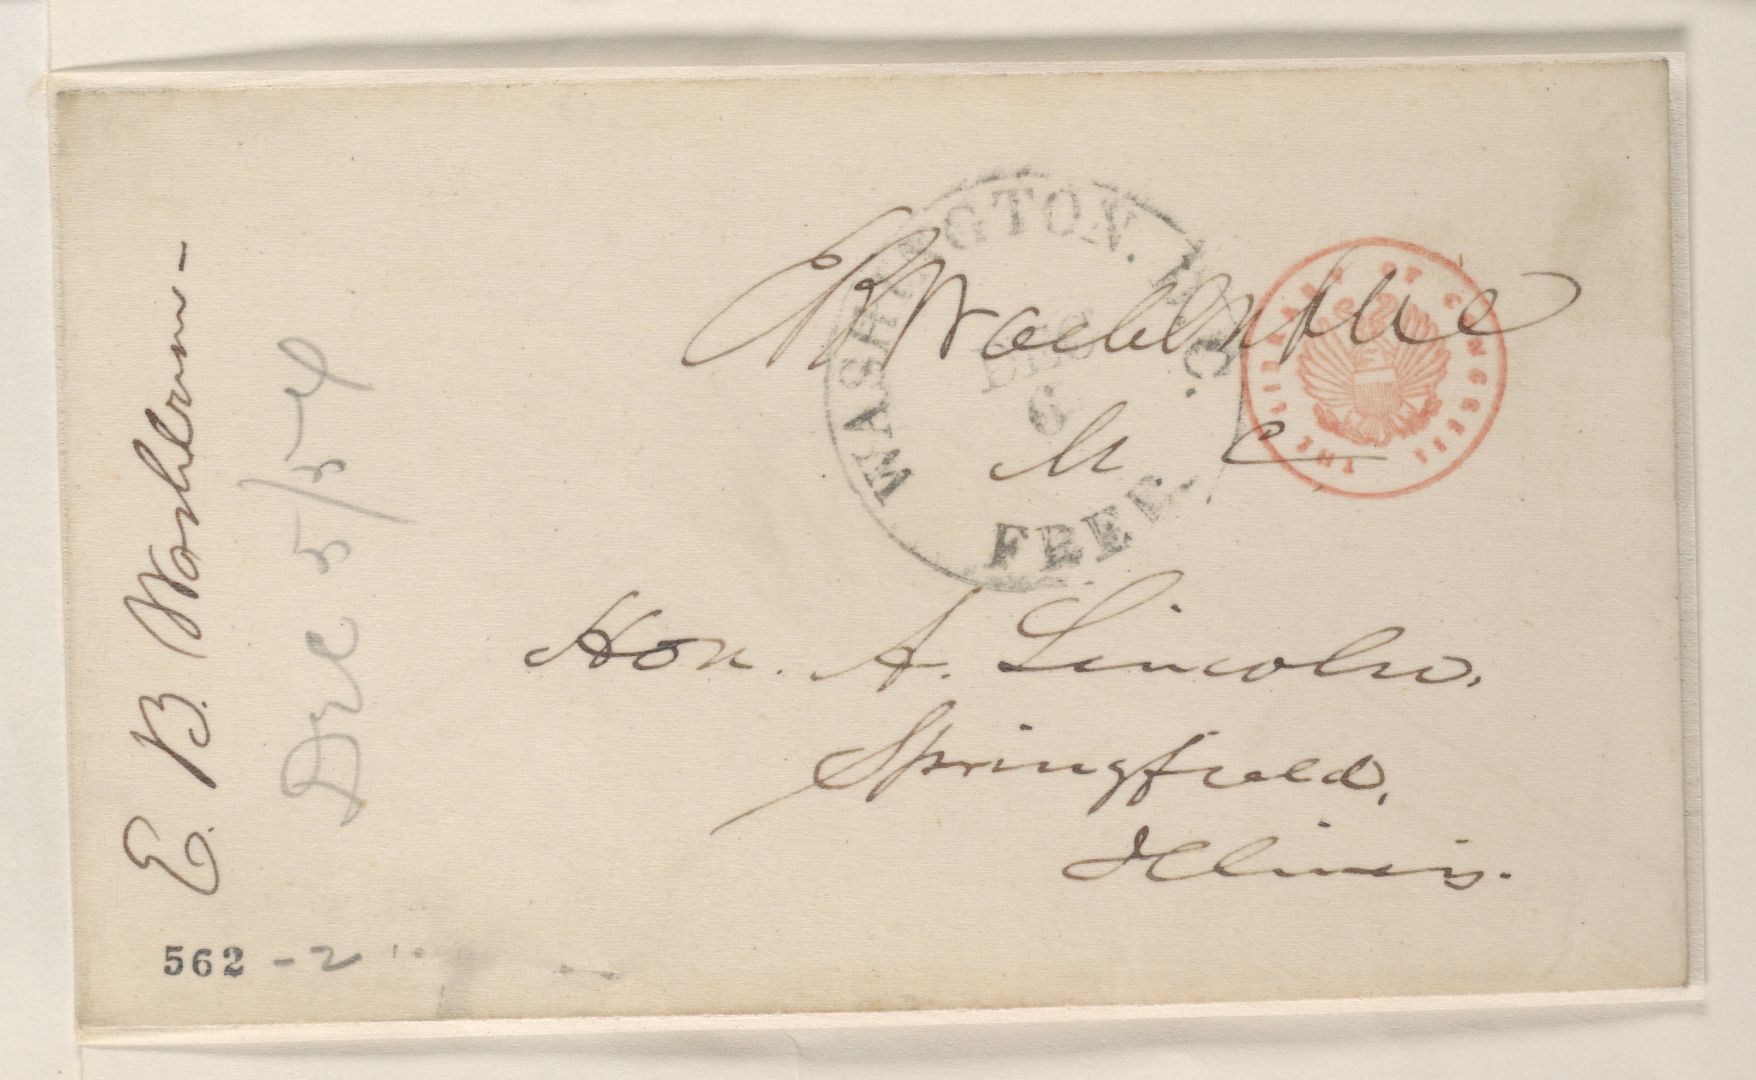 E. B. Washburn-
Dec 5/54
WASHINGTON. D.C.
DEC
6
FREE.
EBWashburne
M C
THE LIBRARY OF CONGRESS
Hon. A. Lincoln,
Springfield,
Illinois.
562 - 2